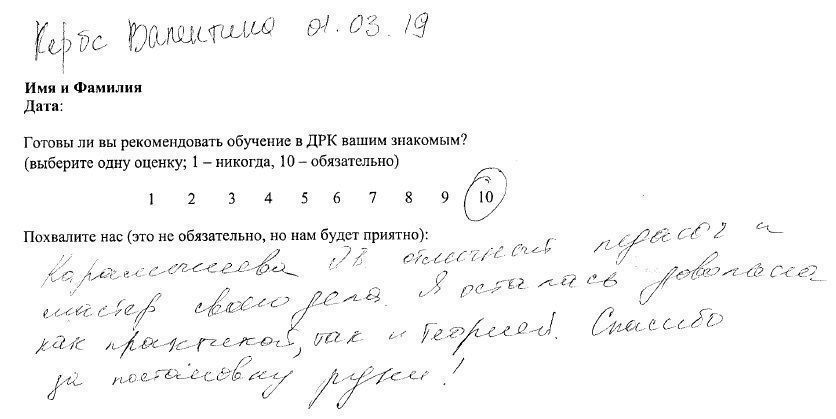 Кербс Валентина 01.03.19
Имя и Фамилия
Дата:
Готовы ли вы рекомендовать обучение в ДРК вашим знакомым?
(выберите одну оценку; 1 – никогда, 10 – обязательно)
1 2 3 4 5 6 7 8 9 10
Похвалите нас (это не обязательно, но нам будет приятно):
отличный педагог и
мастер своего дела. Я осталась довольна
как практикой, так и теорией. Спасибо
за постановку руки!